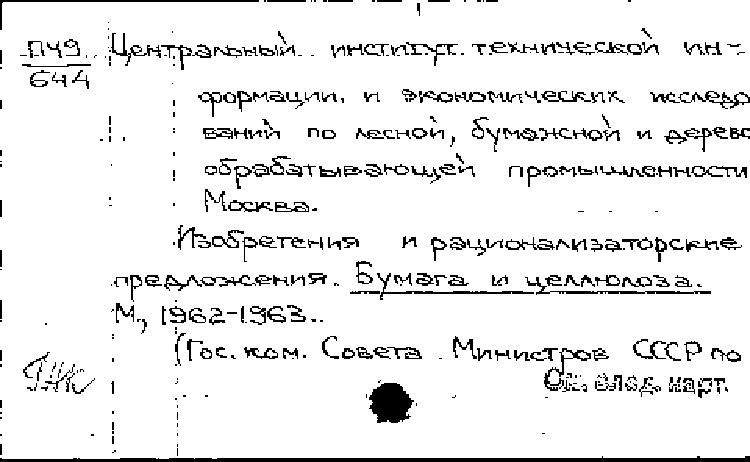 П49 Центральный институт технической ин-
644
формации и экономических исследо
ваний по лесной, бумажной и дерево
обрабатывающей промышленности
Москва.
Изобретения и рационализаторские
предложения. Бумага и целлюлоза.
М., 1962-1963.
(Гос. ком. Совета Министров СССР по
См. след. карт.